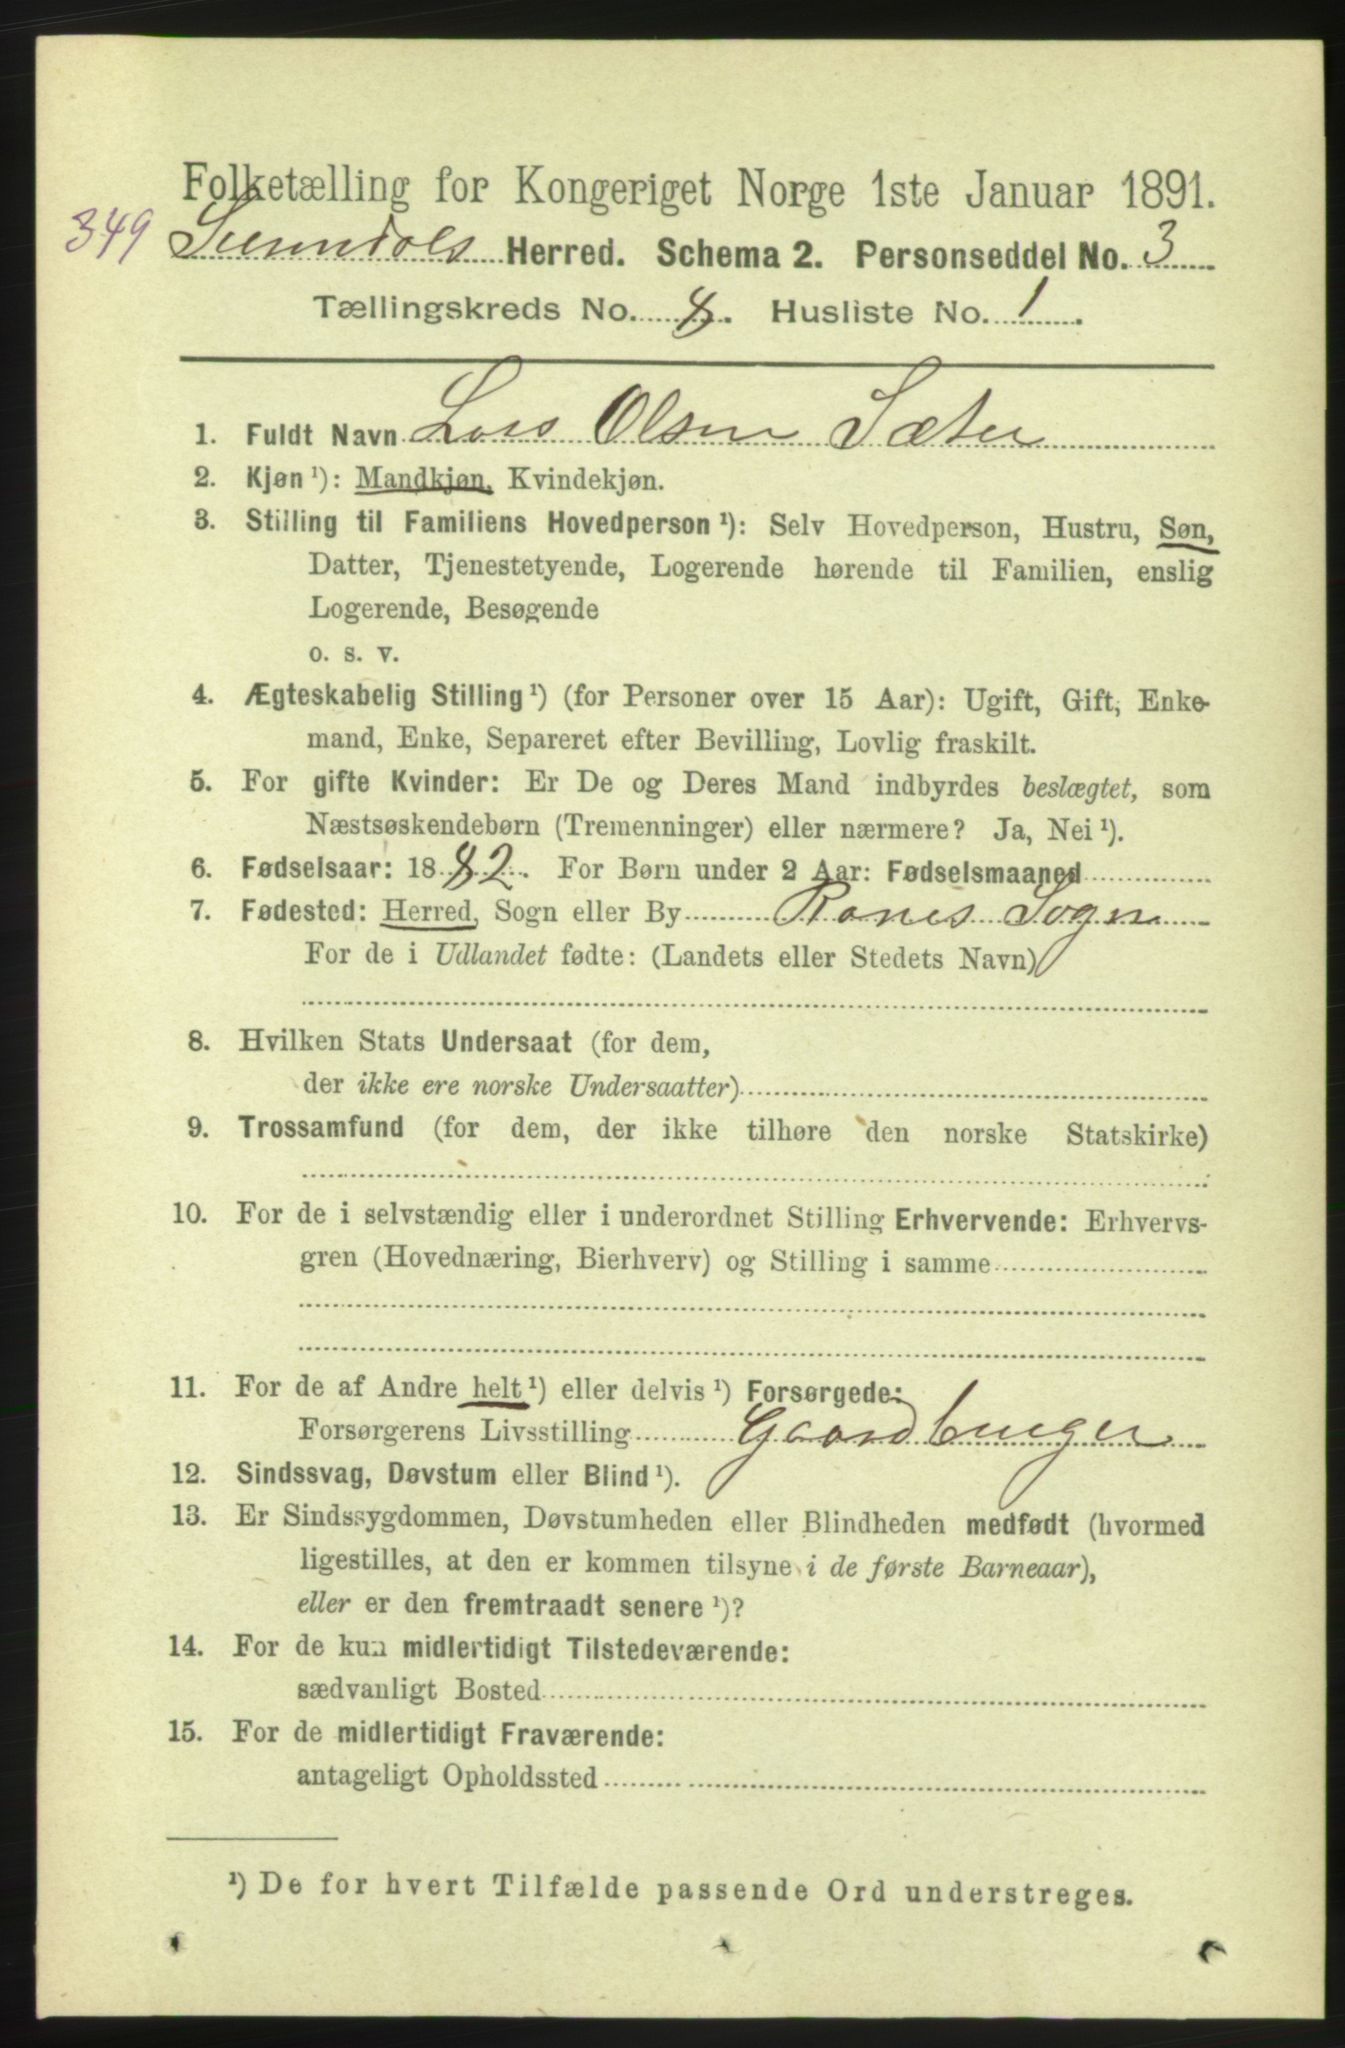 Folketælling for Kongeriget Norge 1ste Januar 1891.
349 Surendals Herred. Schema 2. Personseddel No. 3
Tællingskreds No. 8. Husliste No. 1.
1. Fuldt Navn Lars Olsen Sæter
2. Kjøn ¹): Mandkjøn, Kvindekjøn.
3. Stilling til Familiens Hovedperson ¹): Selv Hovedperson, Hustru, Søn,
Datter, Tjenestetyende, Logerende hørende til Familien, enslig
Logerende, Besøgende
o. s. v.
4. Ægteskabelig Stilling ¹) (for Personer over 15 Aar): Ugift, Gift, Enke-
mand, Enke, Separeret efter Bevilling, Lovlig fraskilt.
5. For gifte Kvinder: Er De og Deres Mand indbyrdes beslægtet, som
Næstsøskendebørn (Tremenninger) eller nærmere? Ja, Nei ¹).
6. Fødselsaar: 1882. For Børn under 2 Aar: Fødselsmaaned
7. Fødested: Herred, Sogn eller By Ranes Sogn
For de i Udlandet fødte: (Landets eller Stedets Navn)
8. Hvilken Stats Undersaat (for dem,
der ikke ere norske Undersaatter)
9. Trossamfund (for dem, der ikke tilhøre den norske Statskirke)
10. For de i selvstændig eller i underordnet Stilling Erhvervende: Erhvervs-
gren (Hovednæring, Bierhverv) og Stilling i samme
11. For de af Andre helt ¹) eller delvis ¹) Forsørgede:
Forsørgerens Livsstilling Gaardbruger
12. Sindssvag, Døvstum eller Blind ¹).
13. Er Sindssygdommen, Døvstumheden eller Blindheden medfødt (hvormed
ligestilles, at den er kommen tilsyne i de første Barneaar),
eller er den fremtraadt senere ¹)?
14. For de kun midlertidigt Tilstedeværende:
sædvanligt Bosted
15. For de midlertidigt Fraværende:
antageligt Opholdssted
¹) De for hvert Tilfælde passende Ord understreges.